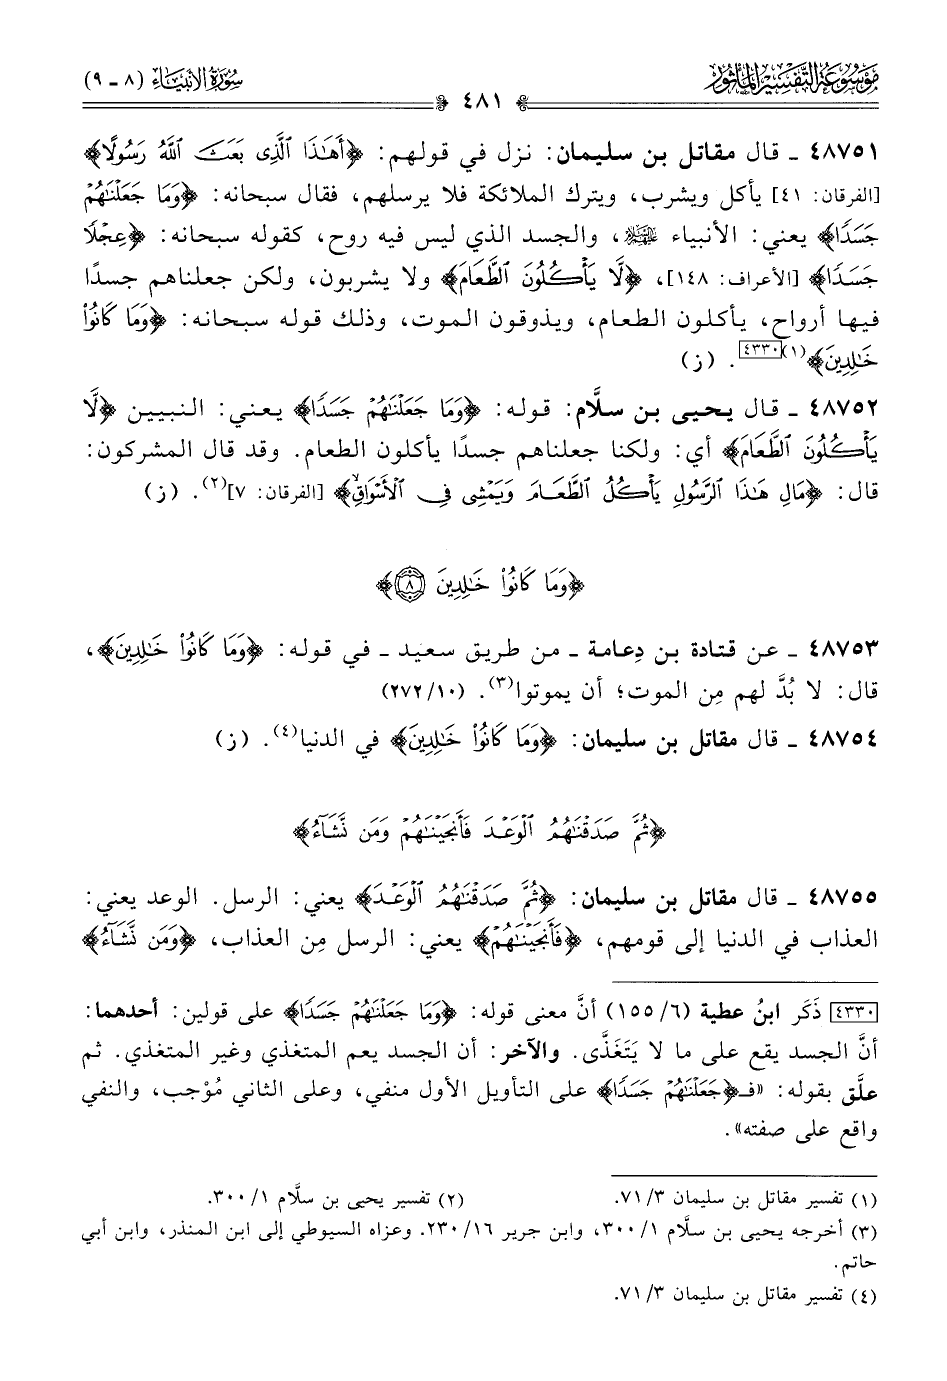 موسوعة التفسير المأثور
٤٨١
سورة الأنبياء (٨ - ٩)
٤٨٧٥١ - قال مقاتل بن سليمان: نزل في قولهم: ﴿أَهَٰذَا ٱلَّذِى بَعَثَ ٱللَّهُ رَسُولًا﴾
[الفرقان: ٤١] يأكل ويشرب، ويترك الملائكة فلا يرسلهم، فقال سبحانه: ﴿وَمَا جَعَلْنَٰهُمْ
جَسَدًا﴾ يعني: الأنبياء ﷺ، والجسد الذي ليس فيه روح، كقوله سبحانه: ﴿عِجْلًا
جَسَدًا﴾ [الأعراف: ١٤٨]، ﴿لَّا يَأْكُلُونَ ٱلطَّعَامَ﴾ ولا يشربون، ولكن جعلناهم جسدًا
فيها أرواح، يأكلون الطعام، ويذوقون الموت، وذلك قوله سبحانه: ﴿وَمَا كَانُوا۟
خَٰلِدِينَ﴾(١)[٤٣٣٠]. (ز)
٤٨٧٥٢ - قال يحيى بن سلَّام: قوله: ﴿وَمَا جَعَلْنَٰهُمْ جَسَدًا﴾ يعني: النبيين ﴿لَّا
يَأْكُلُونَ ٱلطَّعَامَ﴾ أي: ولكنا جعلناهم جسدًا يأكلون الطعام. وقد قال المشركون:
قال: ﴿مَالِ هَٰذَا ٱلرَّسُولِ يَأْكُلُ ٱلطَّعَامَ وَيَمْشِى فِى ٱلْأَسْوَاقِ﴾ [الفرقان: ٧](٢). (ز)
﴿وَمَا كَانُوا۟ خَٰلِدِينَ ٨﴾
٤٨٧٥٣ - عن قتادة بن دِعامة - من طريق سعيد - في قوله: ﴿وَمَا كَانُوا۟ خَٰلِدِينَ﴾،
قال: لا بُدَّ لهم مِن الموت؛ أن يموتوا(٣). (١٠/ ٢٧٢)
٤٨٧٥٤ - قال مقاتل بن سليمان: ﴿وَمَا كَانُوا۟ خَٰلِدِينَ﴾ في الدنيا(٤). (ز)
﴿ثُمَّ صَدَقْنَٰهُمُ ٱلْوَعْدَ فَأَنجَيْنَٰهُمْ وَمَن نَّشَآءُ﴾
٤٨٧٥٥ - قال مقاتل بن سليمان: ﴿ثُمَّ صَدَقْنَٰهُمُ ٱلْوَعْدَ﴾ يعني: الرسل. الوعد يعني:
العذاب في الدنيا إلى قومهم، ﴿فَأَنجَيْنَٰهُمْ﴾ يعني: الرسل مِن العذاب، ﴿وَمَن نَّشَآءُ﴾
[٤٣٣٠] ذَكَر ابنُ عطية (٦/ ١٥٥) أنَّ معنى قوله: ﴿وَمَا جَعَلْنَٰهُمْ جَسَدًا﴾ على قولين: أحدهما:
أنَّ الجسد يقع على ما لا يَتَغَذَّى. والآخر: أن الجسد يعم المتغذي وغير المتغذي. ثم
علَّق بقوله: «فـ﴿جَعَلْنَٰهُمْ جَسَدًا﴾ على التأويل الأول منفي، وعلى الثاني مُوْجب، والنفي
واقع على صفته».
(١) تفسير مقاتل بن سليمان ٣/ ٧١. (٢) تفسير يحيى بن سلَّام ١/ ٣٠٠.
(٣) أخرجه يحيى بن سلَّام ١/ ٣٠٠، وابن جرير ١٦/ ٢٣٠. وعزاه السيوطي إلى ابن المنذر، وابن أبي
حاتم.
(٤) تفسير مقاتل بن سليمان ٣/ ٧١.